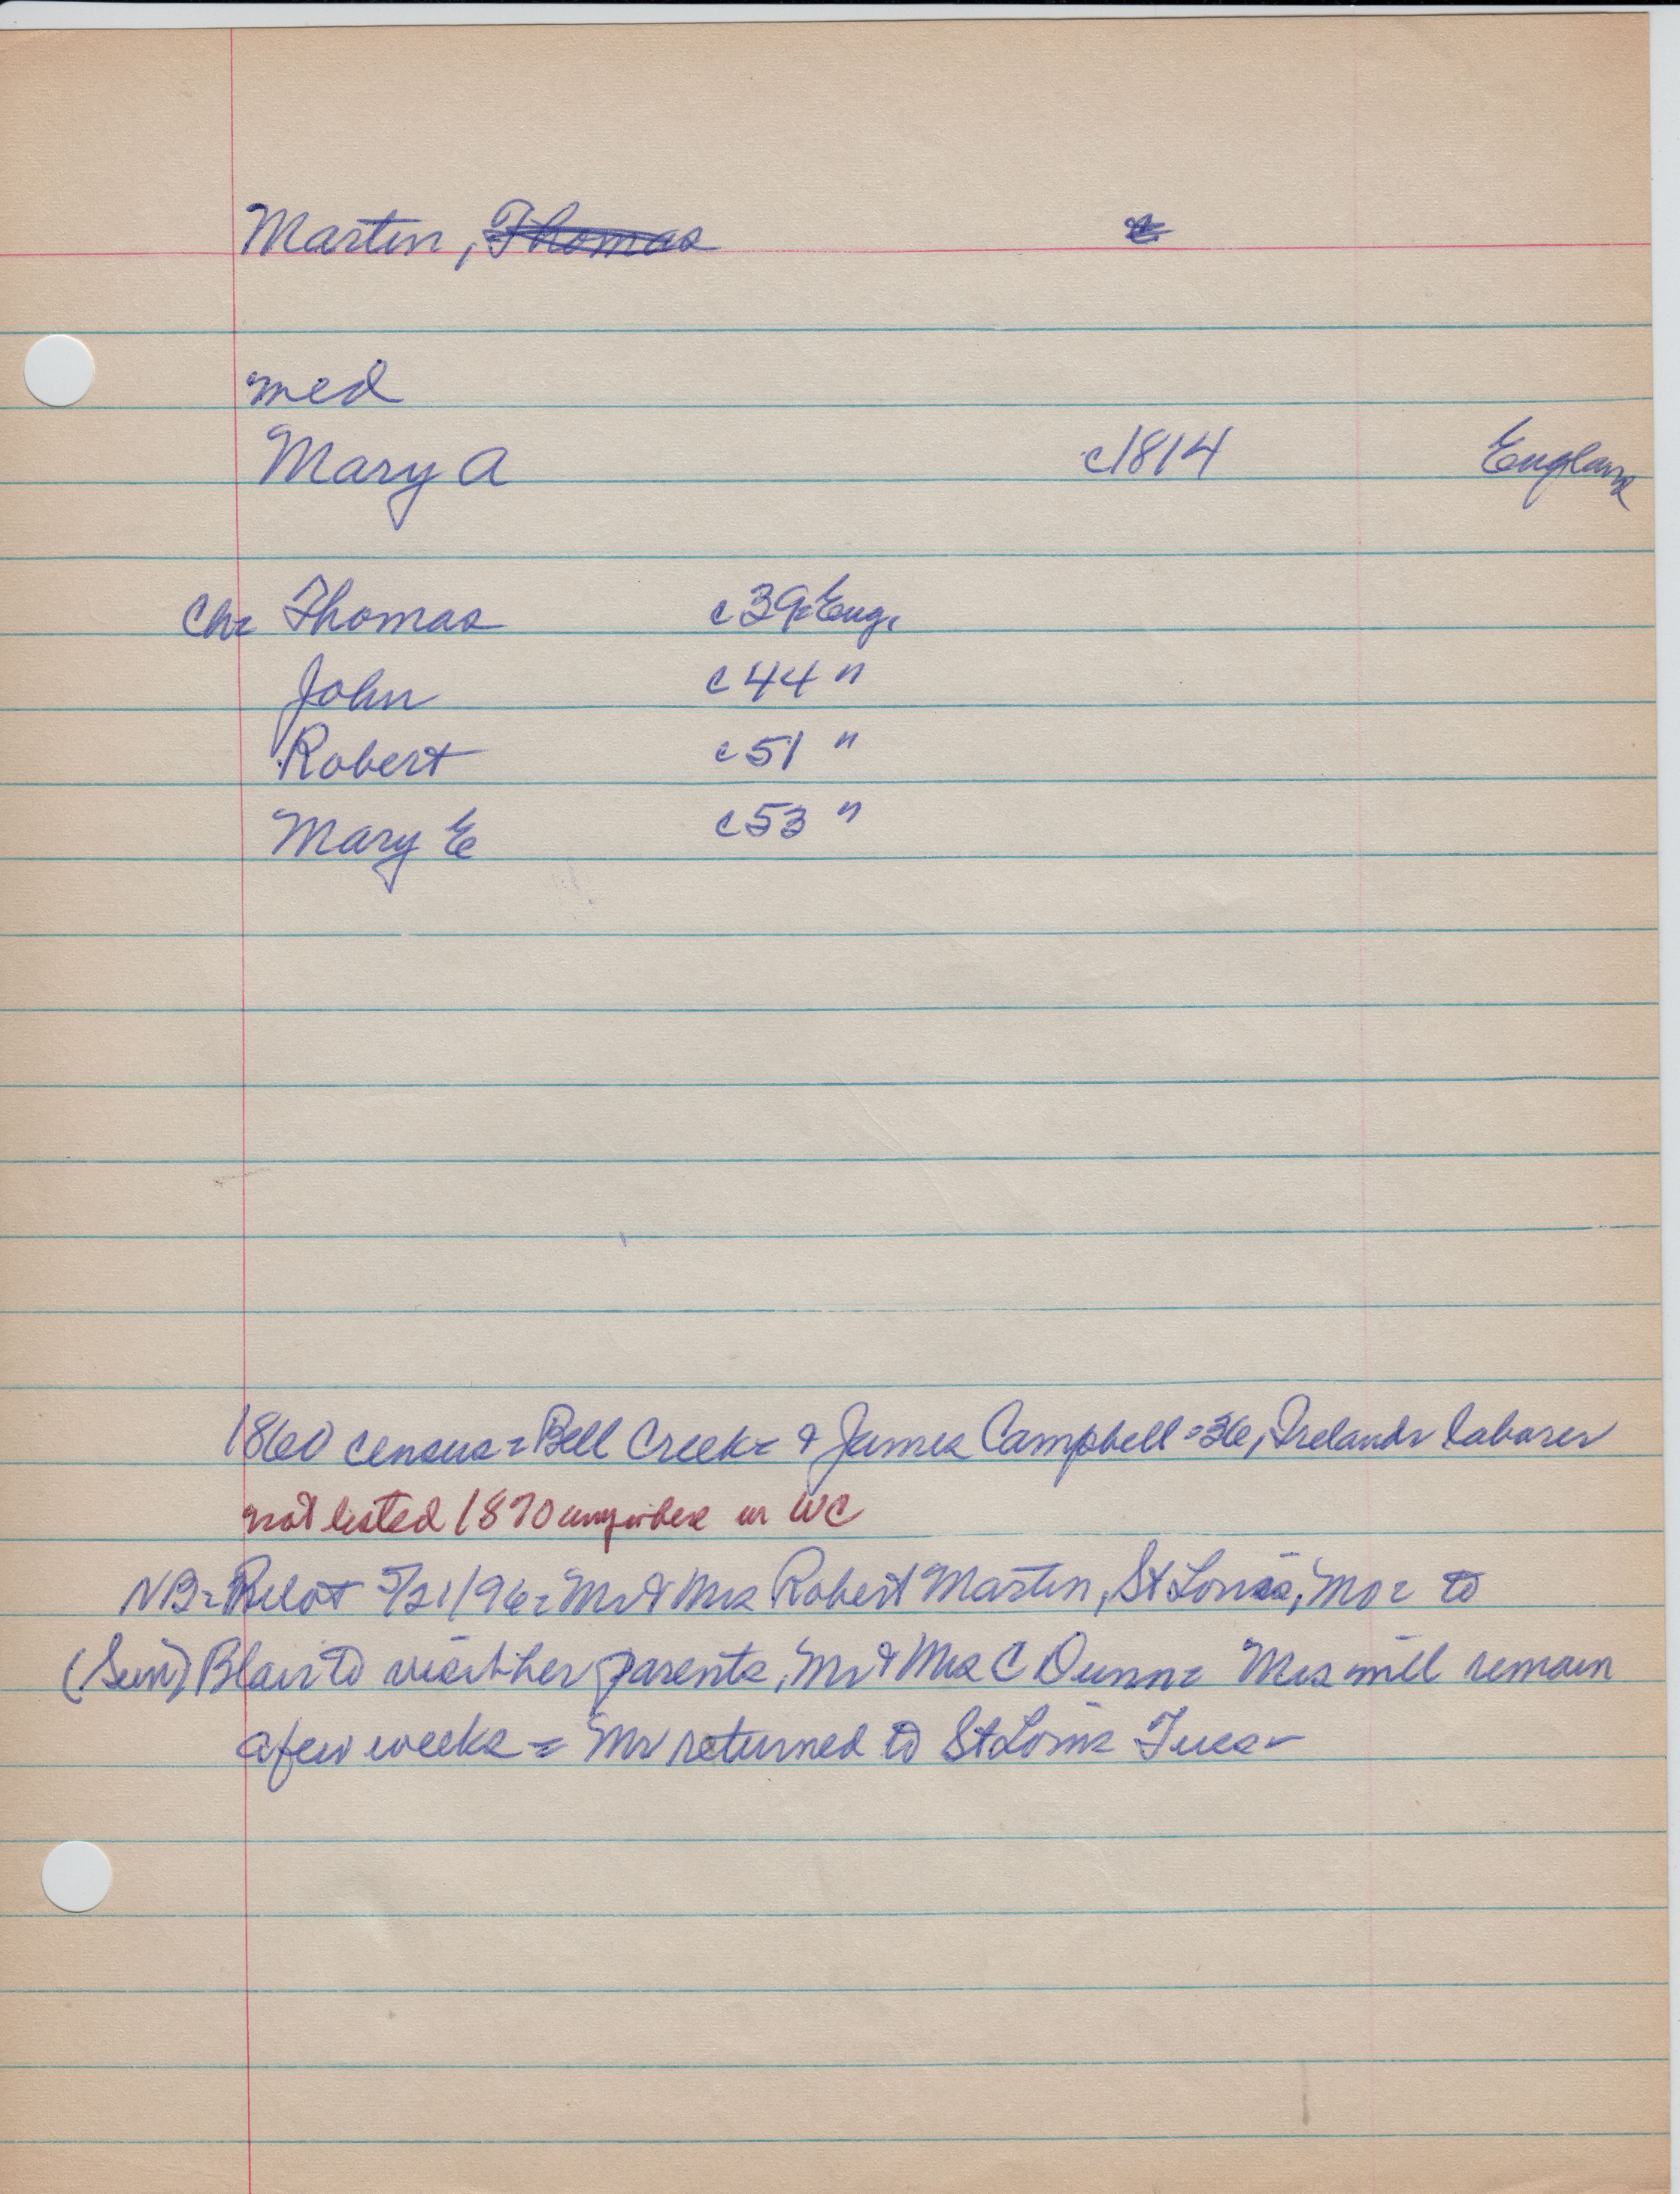 Martin, Thomas
med
Mary A c1814 England
Ch= Thomas c39=Eng.
John c44 "
Robert c51 "
Mary E c53 "
1860 census = Bell Creek = & James Campbell = 36, Ireland = laborer
not listed 1870 anywhere in WC
NB = Pilot 5/21/96 = Mr & Mrs Robert Martin, St Louis, Mo = to
(Sun) Blair to visit her parents, Mr & Mrs C Dunn = Mrs will remain
a few weeks = Mr returned to St Louis Tues -